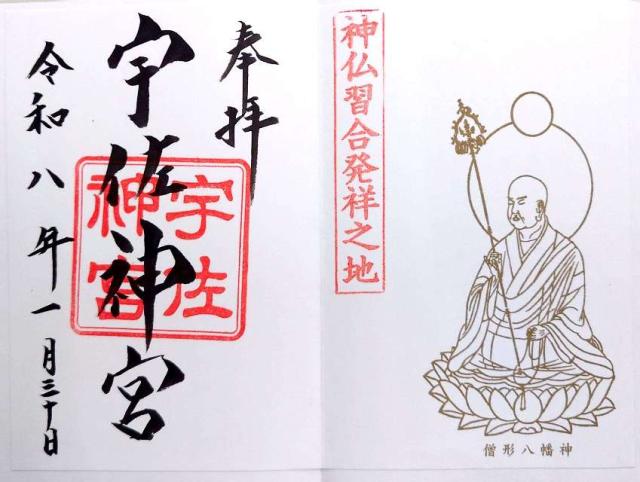 神仏習合発祥之地
僧形八幡神
奉拝
宇佐神宮
宇佐
神宮
令和八年一月三十日